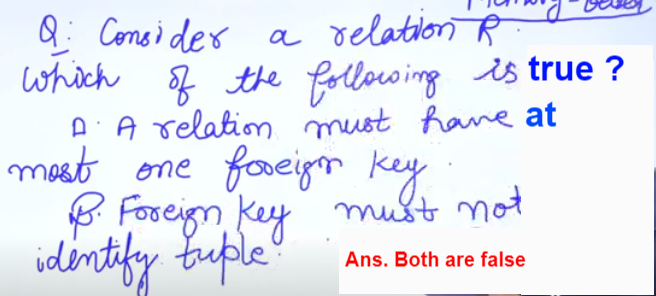 Memory-Based
Q: Consider a relation R.
Which of the following is true ?
A. A relation must have at
most one foreign key.
B. Foreign key must not
identify tuple.
Ans. Both are false